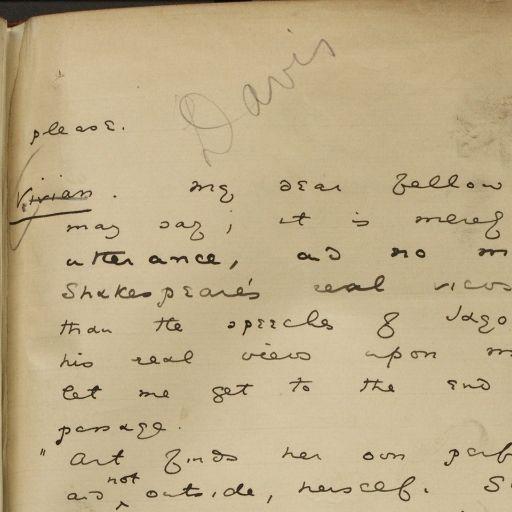 Davis
please.
Vivian. My dear fellow
may say; it is merely
utterance, and no m
Shakespeare's real views
than the speeches of Iago
his real views upon m
let me get to the end
passage.
"Art finds her own perf
and not outside, herself. S